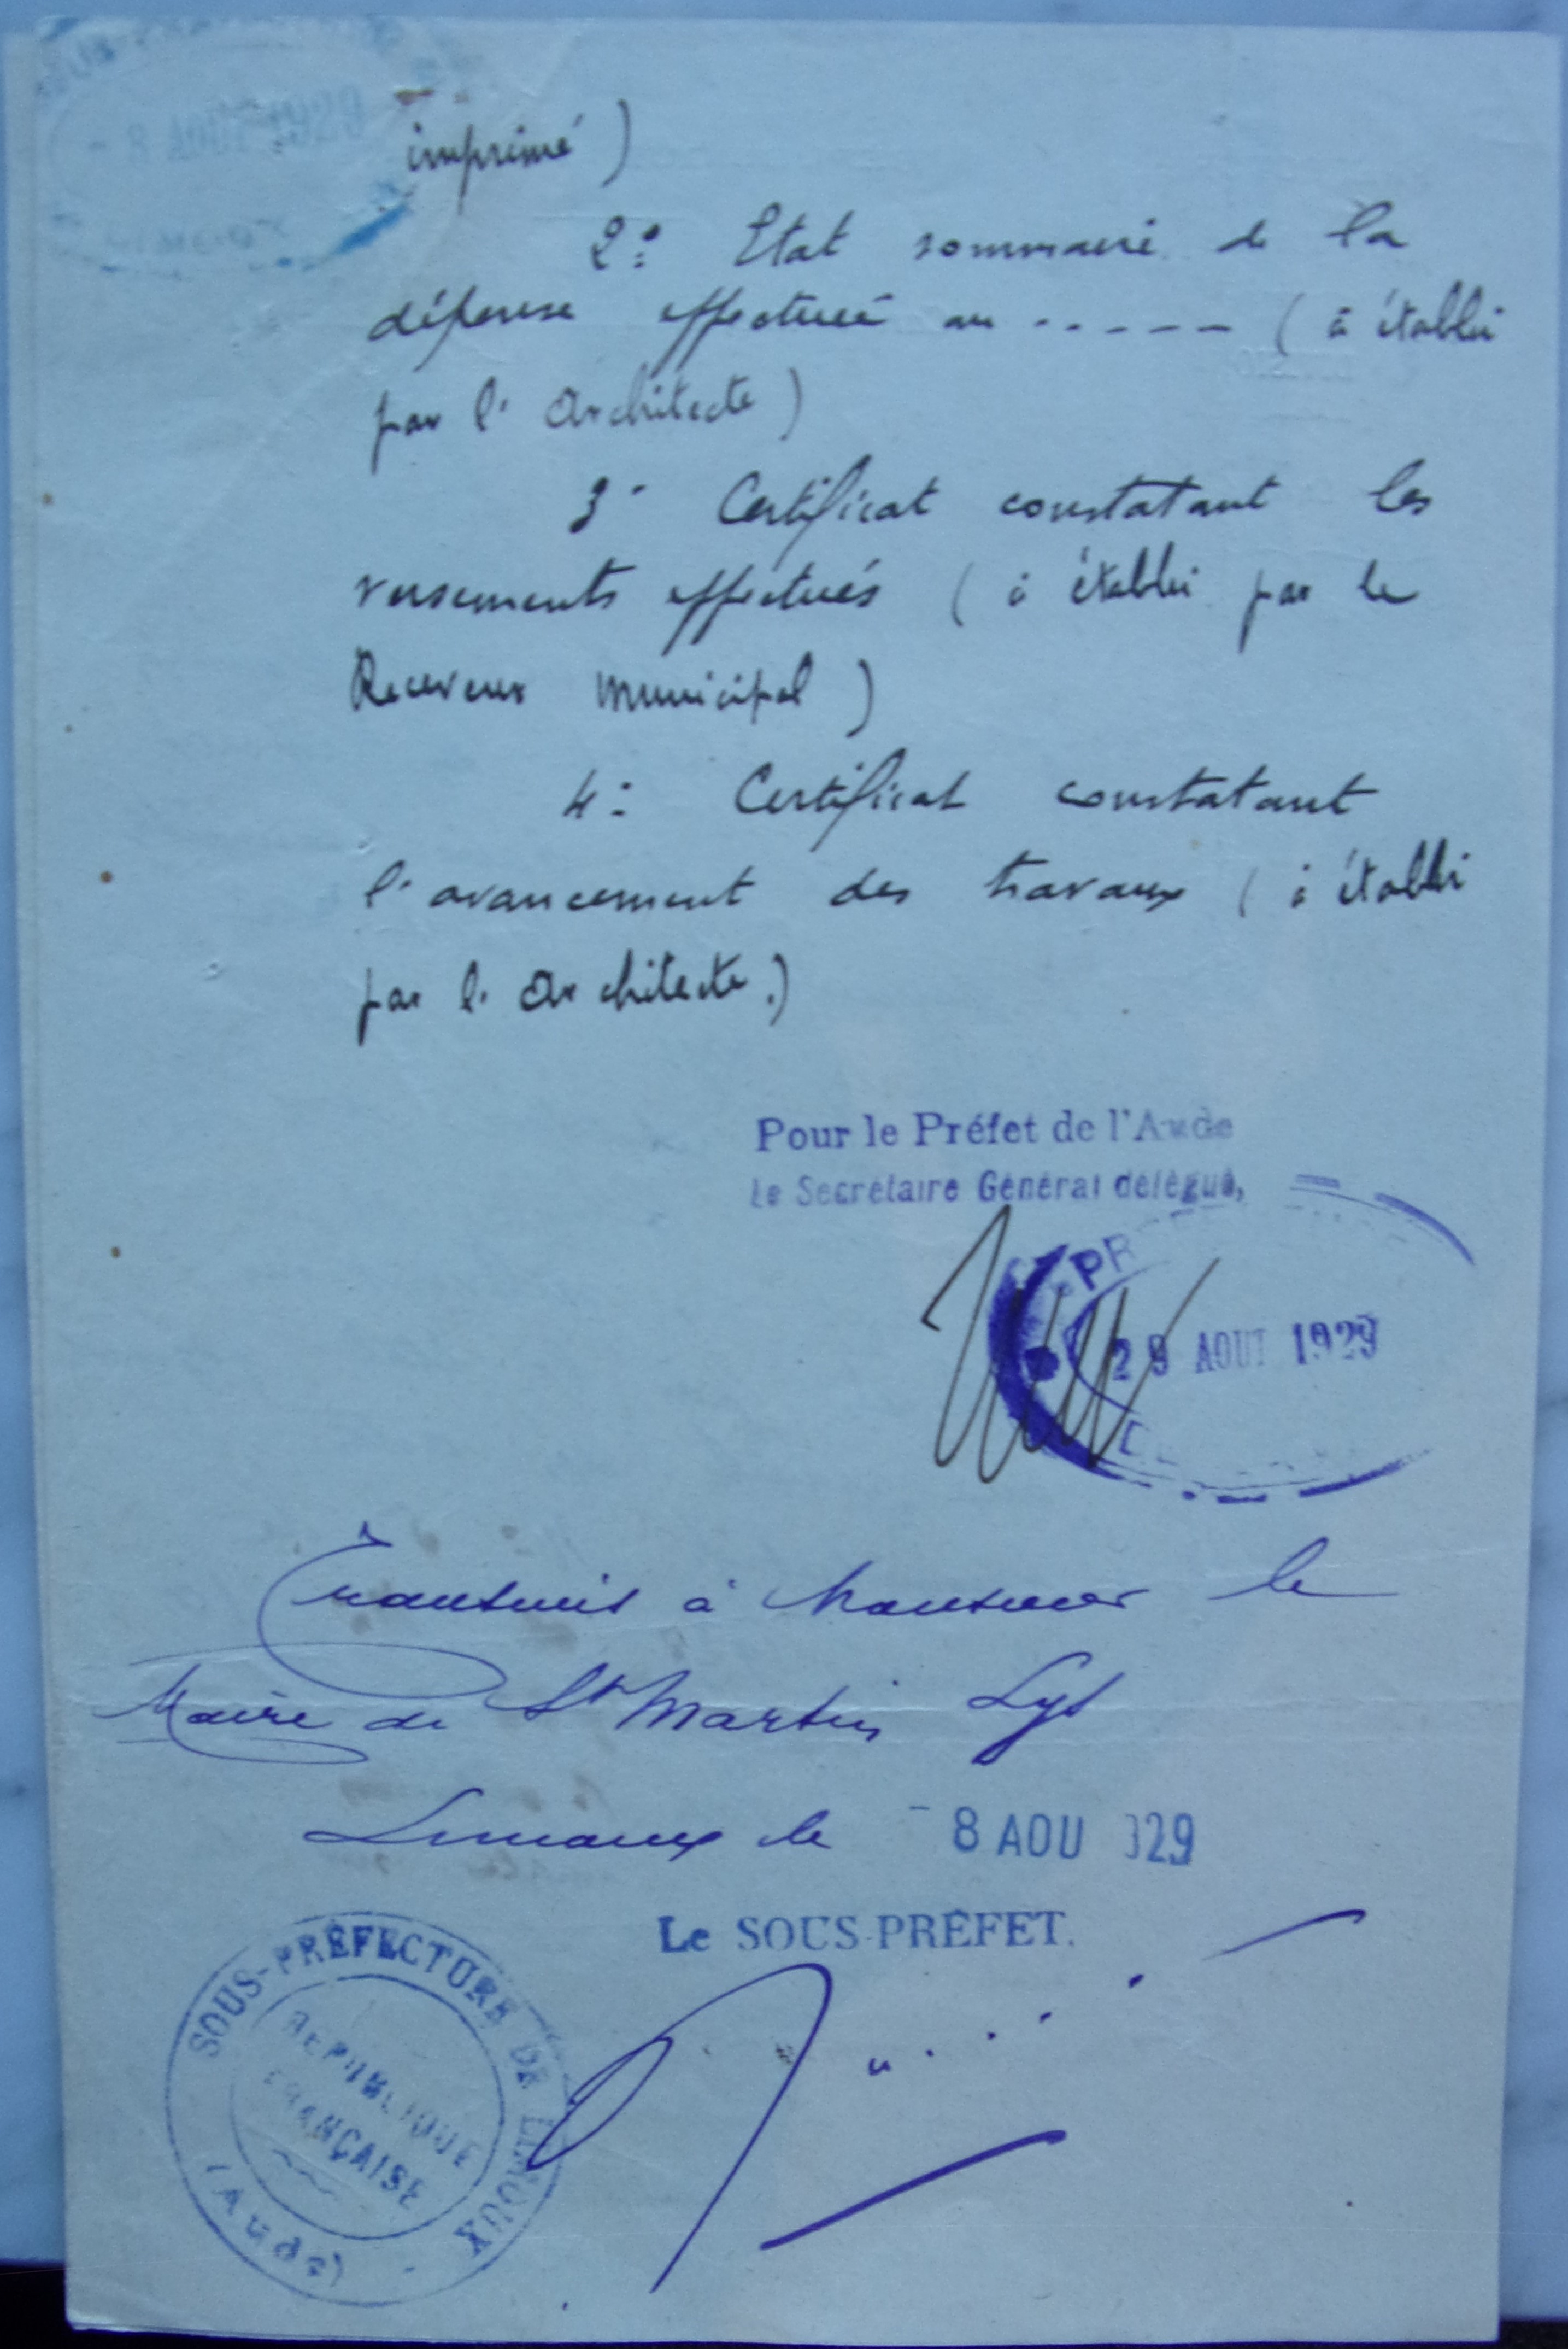 - 8 AOUT 1929
imprimé )
2° Etat sommaire de la
dépense effectuée au ----- ( à établir
par l'Architecte )
3° Certificat constatant les
versements effectués ( à établir par le
Receveur Municipal )
4° Certificat constatant
l'avancement des travaux ( à établir
par l'Architecte.)
Pour le Préfet de l'Aude
Le Secrétaire Général délégué,
PR
29 AOUT 1929
Transmis à Monsieur le
Maire de St Martin Lys
Limoux le - 8 AOU 929
Le SOUS-PRÉFET.
SOUS-PRÉFECTURE DE LIMOUX
REPUBLIQUE
FRANÇAISE
(Aude)